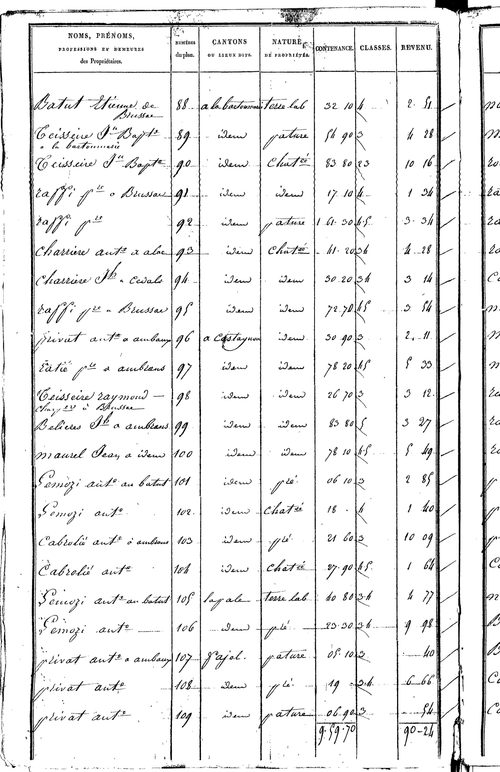 NOMS, PRÉNOMS, PROFESSIONS ET DEMEURES des Propriétaires. NUMÉROS du plan. CANTONS OU LIEUX DITS. NATURE DE PROPRIÉTÉS. CONTENANCE. CLASSES. REVENU.
Batut Etienne de Brussac 88 a la bartoumarie terre lab 32 10 4 2 51
Teisseire Jn Bapte a la bartoumarie 89 idem pature 54 90 3 4 28
Teisseire Jn Bapte 90 idem Chatré 83 80 23 10 16
raffi pre a Brussac 91 idem idem 17 10 4 1 34
raffi pre 92 idem pature 1 61 30 45 3 34
Charriere ante a alac 93 idem Chatré 41 20 34 4 28
Charriere Jh a 94 idem idem 30 20 34 3 14
raffi pre a Brussac 95 idem idem 72 70 45 3 54
privat ante a ambans 96 a Castagnou idem 30 90 3 2 11
Ratié pre a ambrans 97 idem idem 78 20 45 5 33
Teisseire raymond a Brussac 98 idem idem 26 70 3 3 12
Belieres Jh a ambrans 99 idem idem 83 80 5 3 27
maurel Jean a idem 100 idem idem 78 10 45 5 49
Gemozi ante au batut 101 idem pré 06 10 3 2 85
Gemozi ante 102 idem chatré 18 4 1 40
Cabrolié ante a ambrans 103 idem pré 21 60 3 10 09
Cabrolié ante 104 idem chatré 27 90 45 1 64
Gemozi ante au batut 105 lapale terre lab 40 80 34 4 77
Gemozi ante 106 idem pré 23 30 34 9 98
privat ante a ambans 107 Pajol pature 05 10 3 40
privat ante 108 idem pré 19 34 6 66
privat ante 109 idem pature 06 90 3 54
9.59.70 90-24